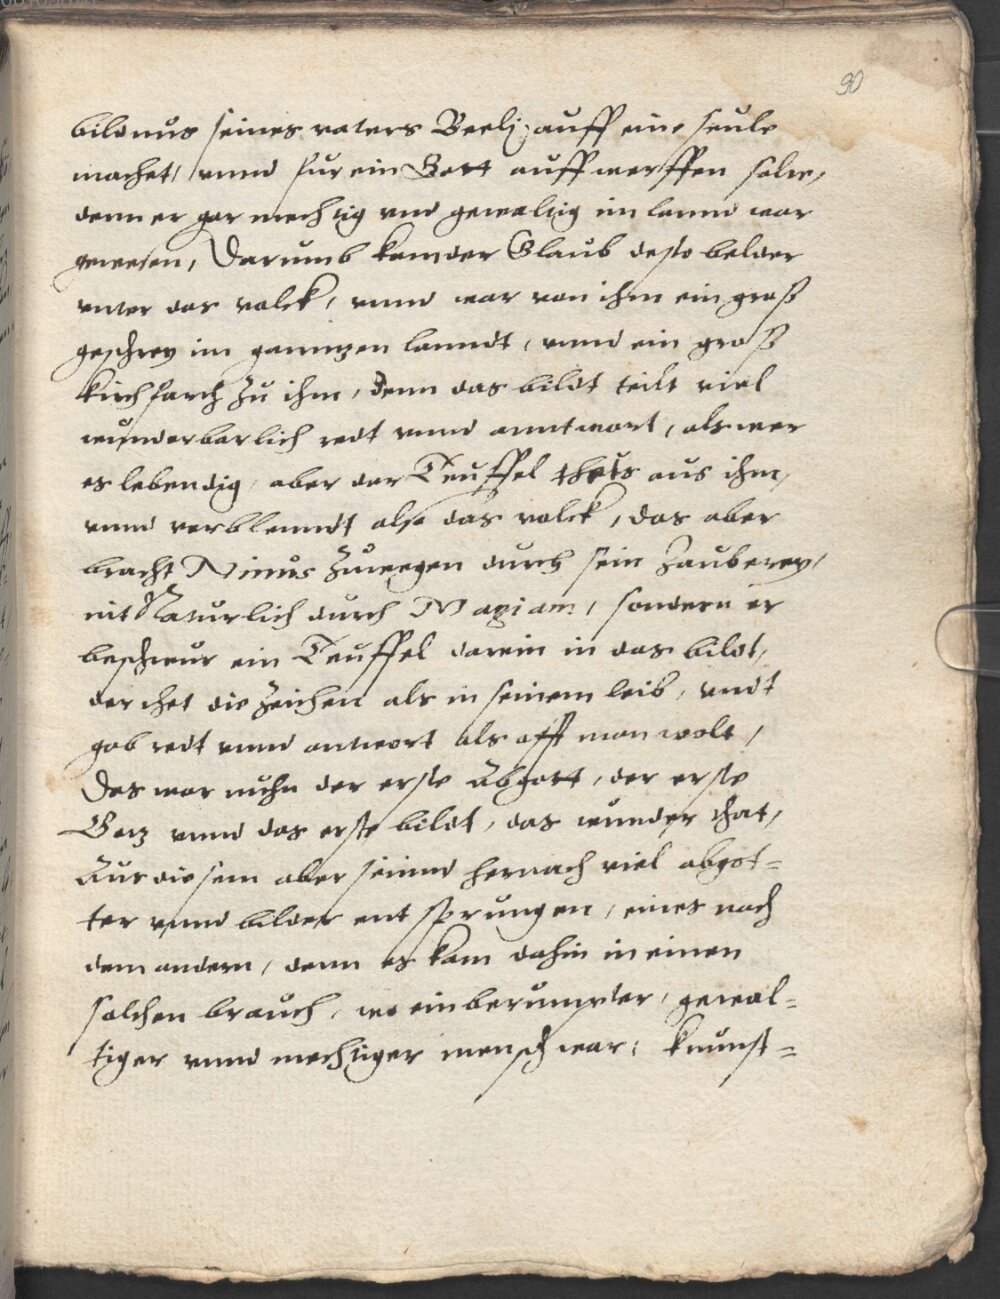 90
bildnus seines vaters Beelj auff eine seule
machet, vnnd fur ein Gott auff werffen solte,
denn er gar mechtig vnd gewaltig im lannd war
gewesen, Darumb kam der Glaub desto belder
vnter das volck, vnnd war von ihm ein groß
geschrey im ganntzen lanndt, vnnd ein groß
kirchfarth zu ihm, denn das bildt teilt viel
wunderbarlich redt vnnd anntwort, als wer
es lebendig, aber der Teuffel thets aus ihm,
vnnd verblenndt also das volck, das aber
bracht Ninus zuwegen durch sein zauberey,
nit Naturlich durch Magiam, sondern er
beschwur ein Teuffel darein in das bildt,
der thet die zeichen als in seinem leib, vndt
gab redt vnnd antwort als offt man wolt,
Das war nuhn der erste Abgott, der erste
Götz vnnd das erste bildt, das wunder that,
Aus diesem aber seinnd hernach viel abgot=
ter vnnd bilder entsprungen, eines nach
dem andern, denn es kam dahin in einen
solchen brauch, wo ein berumpter, gewal=
tiger vnnd mechtiger mensch war, kunst=